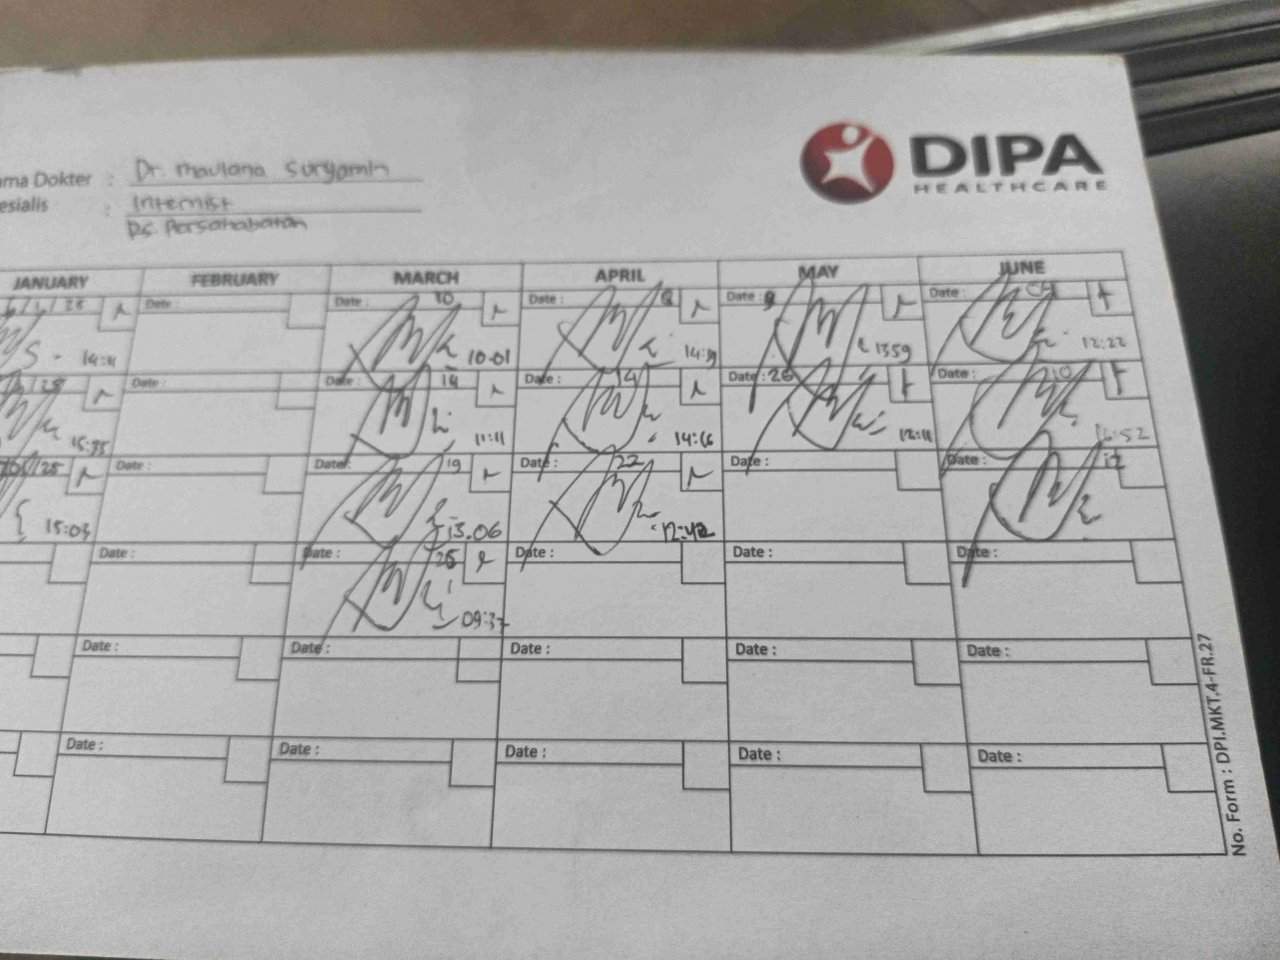 DIPA
HEALTHCARE
ama Dokter : Dr. Maulana Suryamin
esialis : Internist
RS. Persahabatan
JANUARY FEBRUARY MARCH APRIL MAY JUNE
Date : Date : 10 Date : 8 Date : 9 Date : 04
14:11 10.01 14:19 1359 12:22
Date : Date : 14 Date : 14 Date : 26 Date : 10
15:35 11:11 14:16 12:11
Date : Date : 19 Date : 22 Date : Date : 17
15:03 13.06 12:42
Date : Date : 25 Date : Date : Date :
09:37
Date : Date : Date : Date : Date :
Date : Date : Date : Date : Date :
No. Form : DPI.MKT.4-FR.27